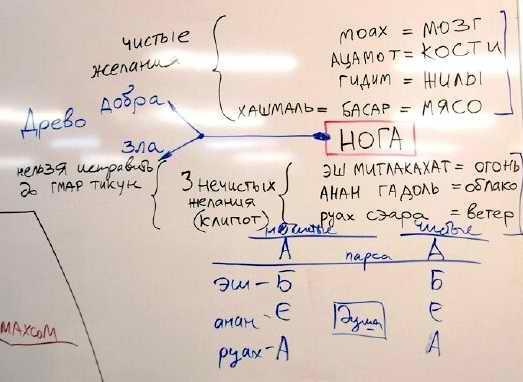 чистые
желания
моах = мозг
ацамот = кости
гидим = жилы
хашмаль = басар = мясо
Древо
добра
зла
НОГА
нельзя исправить
до гмар тикун
3 нечистых
желания
(клипот)
эш митлакахат = огонь
анан гадоль = облако
руах сэара = ветер
чистые
А А
парса
эш - Б Б
анан - Є Є
Душа
руах - А А
МАХСОМ